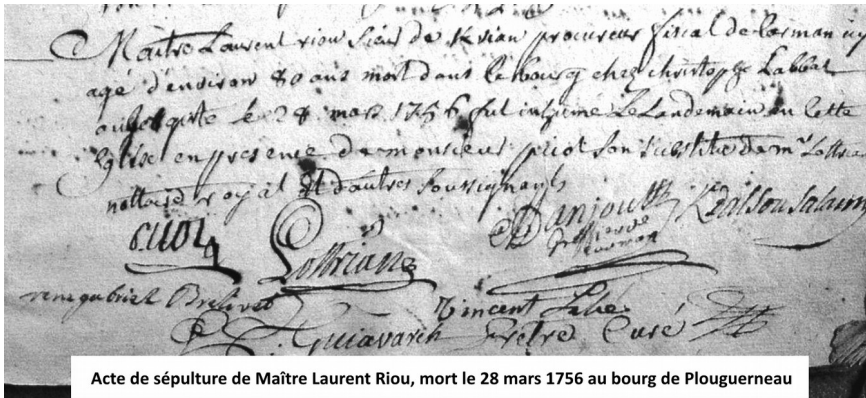 Maître Laurent riou sieur de procureur fiscal de
agé d'environ 80 ans mort dans le bourg chez christophe Labbat
le 28 mars 1756 fut inhumé Le Landemain en Cette
Eglise en presence de monsieur priol son substitut de mr Lostrian
nottaire royal et d'autres soussignants
Lostrian Danjou Salaun
rene gabriel Brelivet Vincent Labé
Guiavarch Prêtre Curé
Acte de sépulture de Maître Laurent Riou, mort le 28 mars 1756 au bourg de Plouguerneau